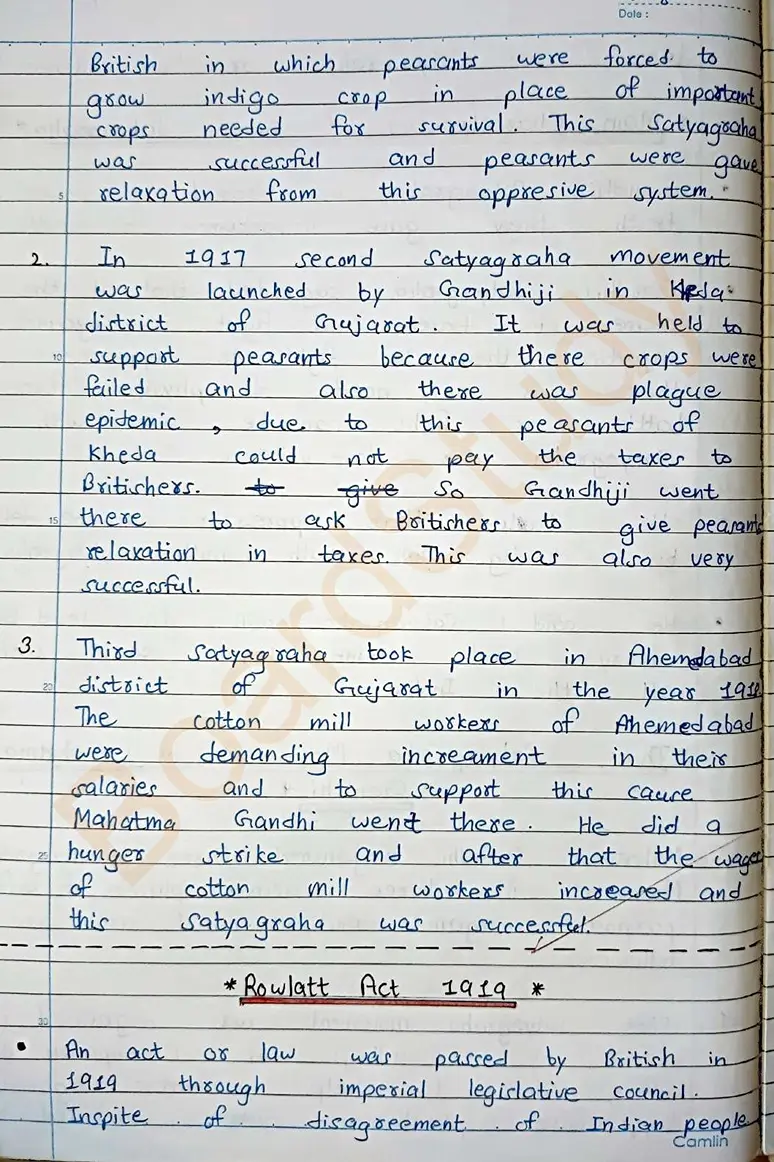 Date :
British in which peasants were forced to
grow indigo crop in place of important
crops needed for survival. This Satyagraha
was successful and peasants were gave
5 relaxation from this oppresive system.
2. In 1917 second Satyagraha movement
was launched by Gandhiji in Kheda
district of Gujarat. It was held to
10 support peasants because there crops were
failed and also there was plague
epidemic, due to this peasants of
Kheda could not pay the taxes to
Britishers. to give So Gandhiji went
15 there to ask Britishers to give peasants
relaxation in taxes. This was also very
successful.
3. Third Satyagraha took place in Ahemdabad
20 district of Gujarat in the year 1918
The cotton mill workers of Ahemedabad
were demanding increament in their
salaries and to support this cause
Mahatma Gandhi went there. He did a
25 hunger strike and after that the wages
of cotton mill workers increased and
this Satyagraha was successful.
* Rowlatt Act 1919 *
30
• An act or law was passed by British in
1919 through imperial legislative council.
Inspite of disagreement of Indian people
Camlin
BoardStudy